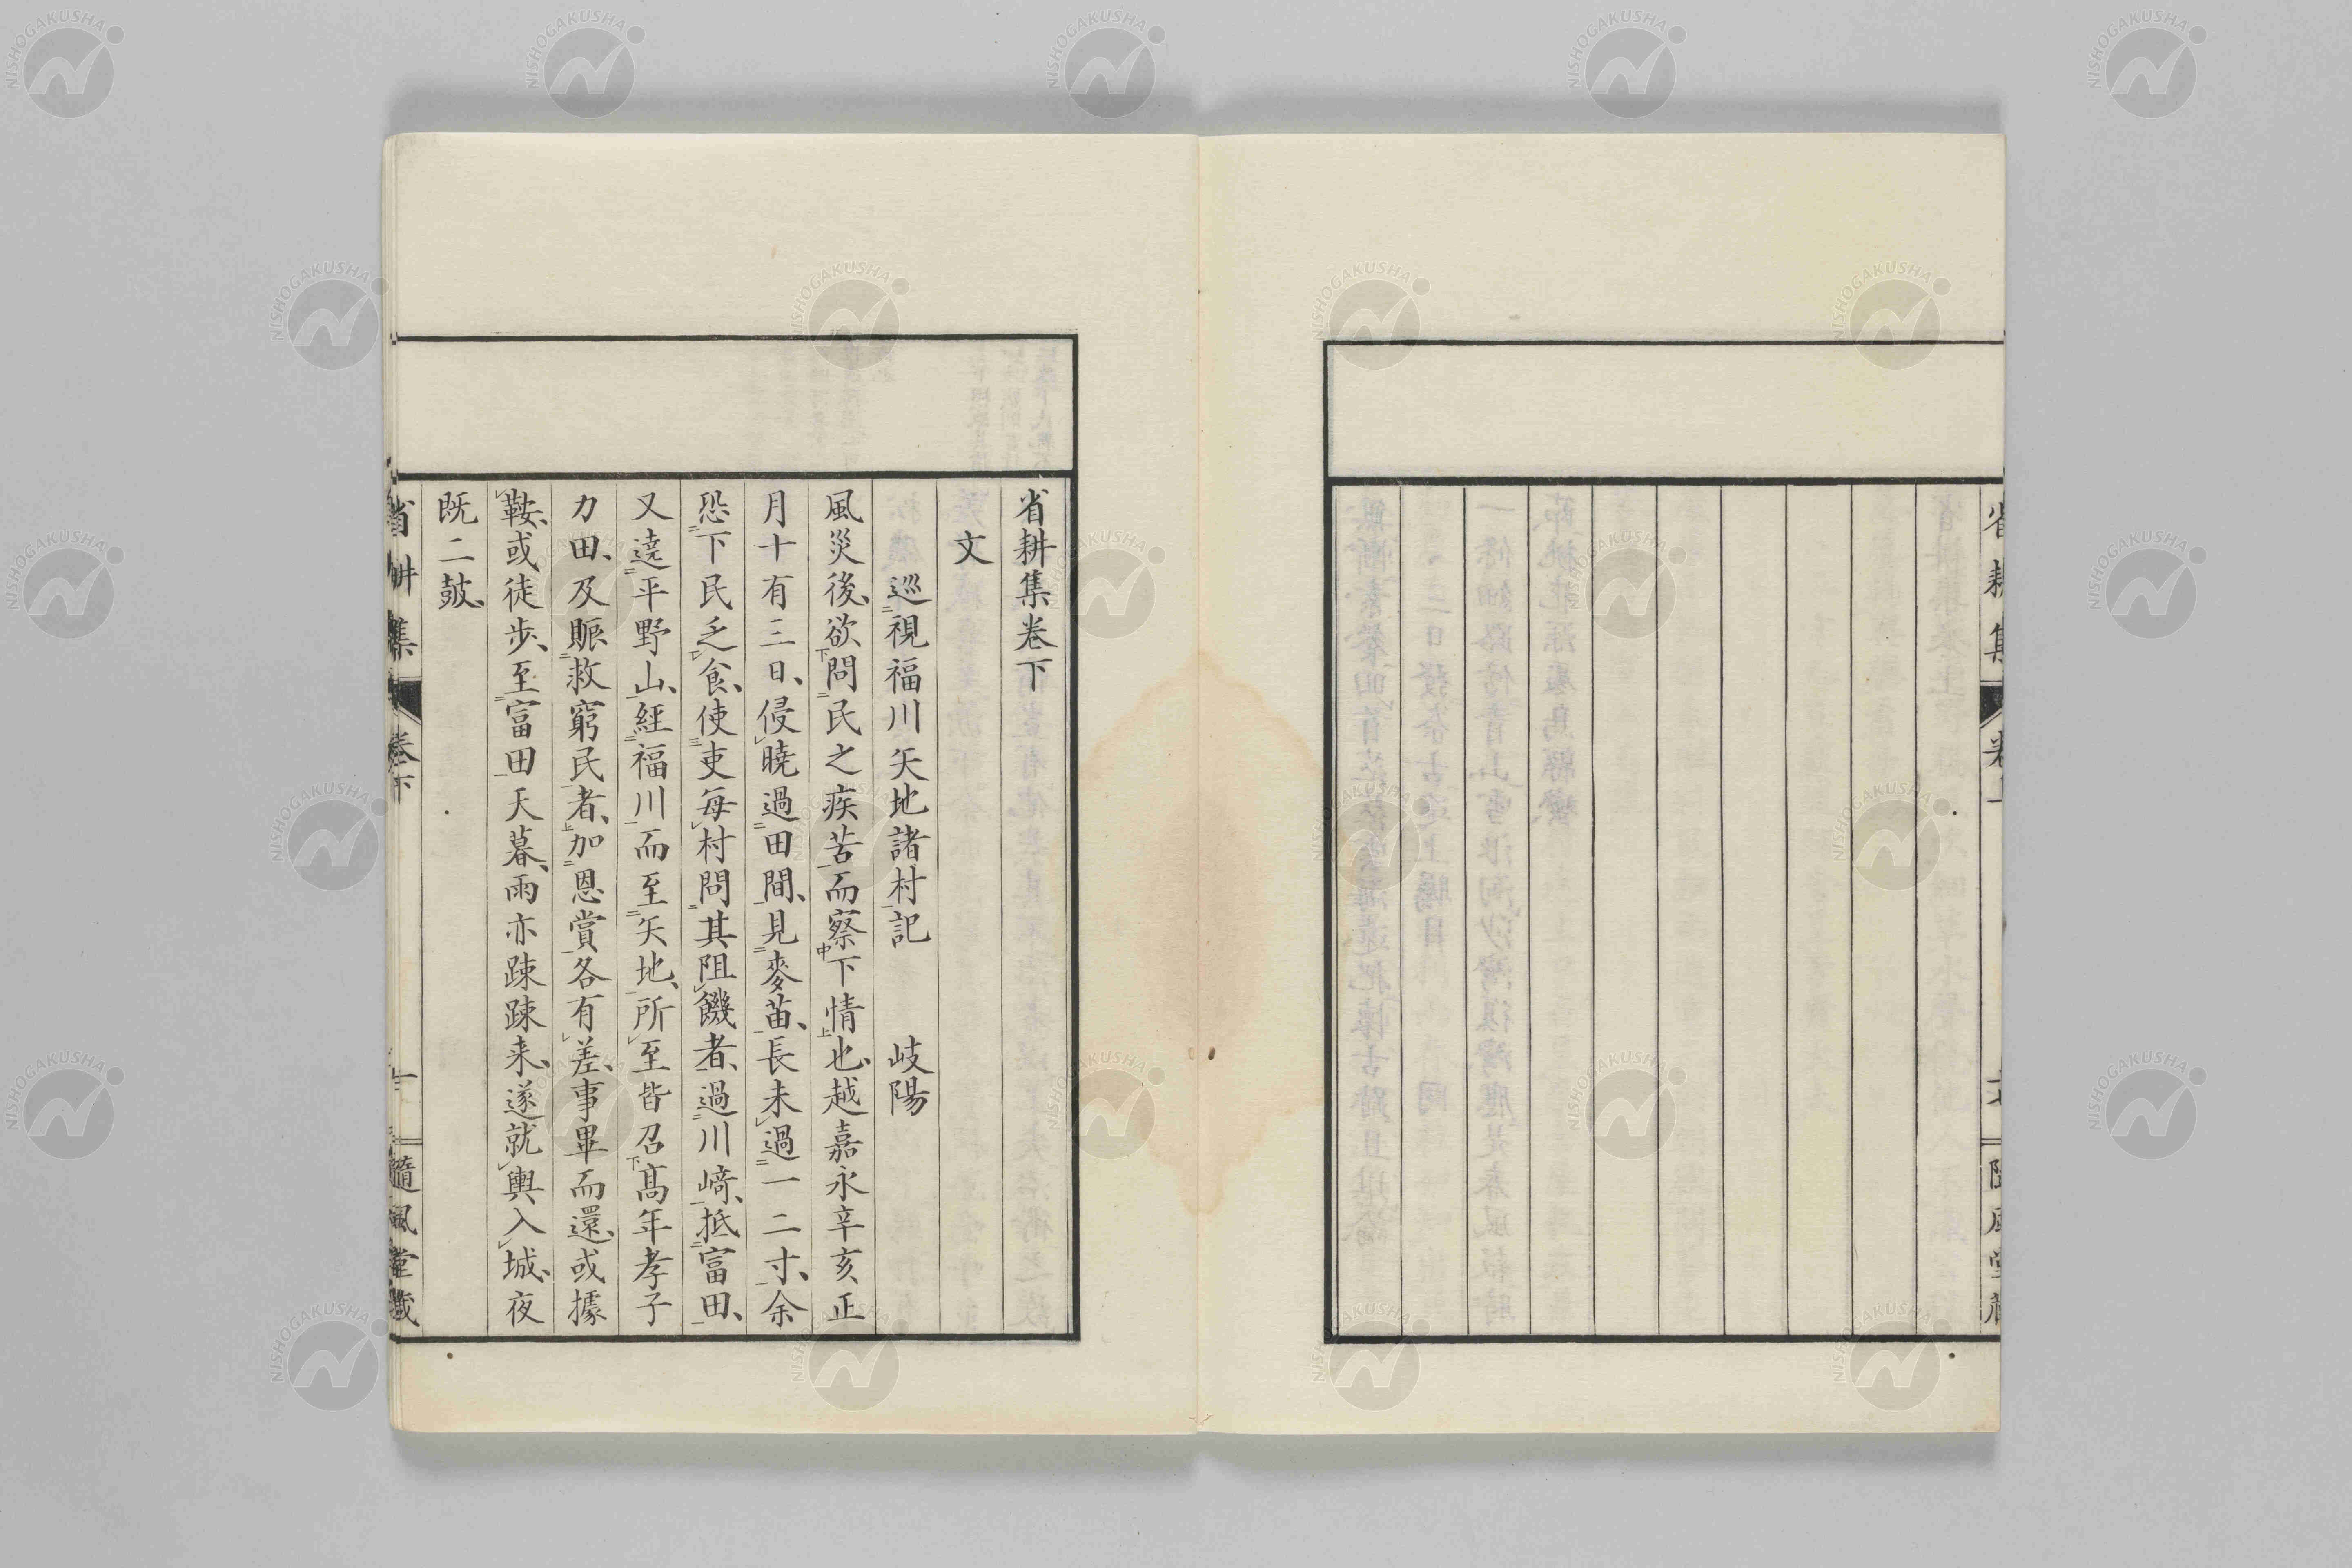 省耕集巻下
文
巡視福川矢地諸村記 岐陽
風災後、欲問民之疾苦而察下情也、越嘉永辛亥正
月十有三日、侵曉過田間、見麥苗、長未過一二寸、余
恐下民乏食、使吏每村問其阻饑者、過川﨑、抵富田、
又遶平野山、經福川而至矢地、所至皆召髙年孝子
力田、及賑救窮民者、加恩賞各有差、事畢而還、或據
鞍、或徒步、至富田天暮、雨亦踈踈来、遂就輿入城、夜
既二皷、
省耕集 卷下 一 隨風堂藏
NISHOGAKUSHA